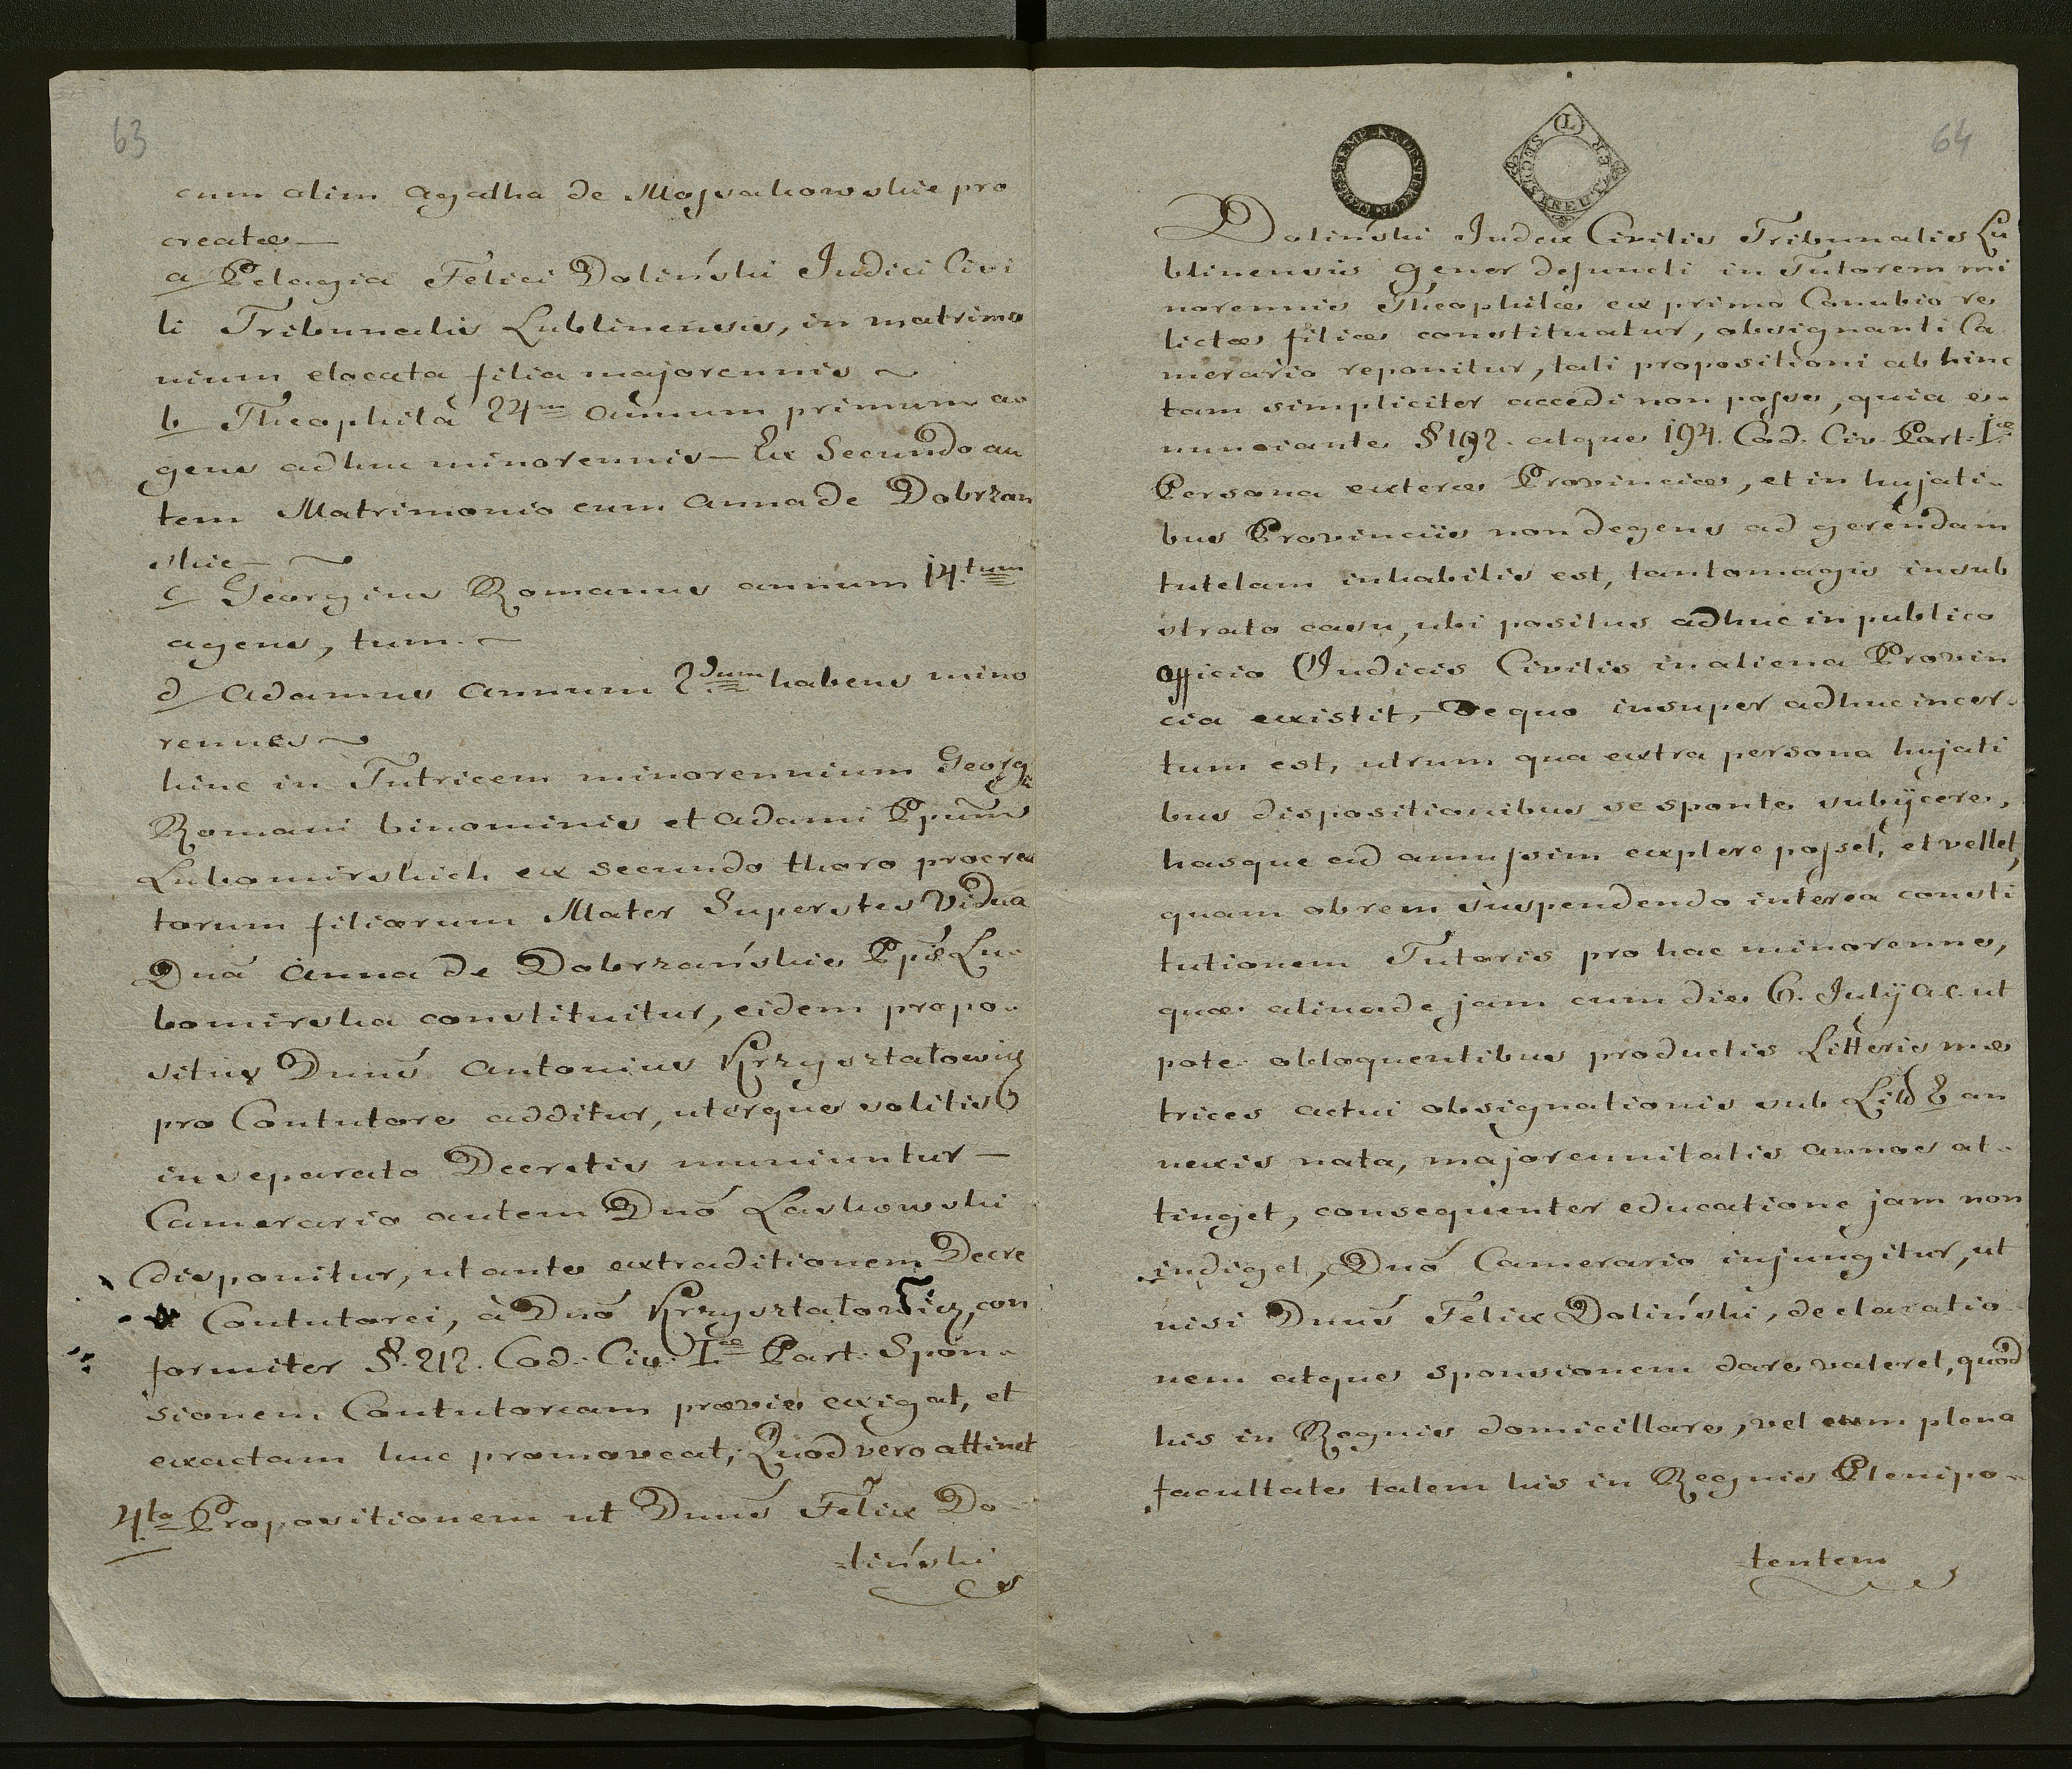 63
cum olim Agatha de Mossakowskie pro
creatæ —
a/ Pelagia Felici Doliński Judici Civi
li Tribunalis Lublinensis, in matrimo
nium elocata filia majorennis ~
b Theophila 24m annum primum a
gens adhuc minorennis — Ex Secundo au
tem Matrimonio cum Anna de Dobrzan
skie — ~
c/ Georgius Romanus annum 14.tum
agens, tum. ~
d/ Adamus annum 2dum habens mino
rennes ~
hinc in Tutricem minorennium Georgii
Romani binominis et Adami Ppum
Lubomirskich ex secundo thoro procrea
torum filiorum Mater Superstes Vidua
Dna Anna de Dobrzańskie Pps Lu-
bomirska constituitur, eidem propo-
situs Dnus Antonius Krzysztalowicz
pro Contutore additur, uterque solitis
in separato Decretis muniuntur —
Camerario autem Dno Laskowski
disponitur, ut ante extraditionem Decre
ti Contutorei, à Dno Krzysztatowicz, con
formiter §. 212. Cod. Civ. Iæ Part: Spon-
sionem Contutoream prævie exigat, et
exactam huc promoveat; Quod vero attinet
4to Propositionem ut Dnus Felix Do-
-liński
64
STEMP
(L) SECHSER KREUTZER
Doliński Judex Civilis Tribunalis Lu
blinensis gener defuncti in Tutorem mi
norennis Theophilæ ex primo Conubio re
lictæ filiæ constituatur, obsignanti Ca
merario reponitur, tali propositioni ab hinc
tam simpliciter accedi non posse, quia e-
nunciante § 192. atque 194. Cod. Civ. Part: Iæ
Persona exteræ Provinciæ, et in hujati-
bus Provinciis non degens ad gerendam
tutelam inhabilis est, tantomagis in sub
strato casu, ubi positus adhuc in publico
officio Judicis Civilis in aliena Provin
cia existit, — de quo insuper adhuc incer-
tum est, utrum qua extra persona hujati
bus dispositionibus se sponte subijcere,
hasque ad amussim explere posset, et vellet,
quam ob rem suspendendo interea consti
tutionem Tutoris pro hac minorenne,
quæ aliunde jam cum die 6. Julij a.c. ut
pote obloquentibus productis Litteris me
trices actui obsignationis sub an
nexis nata, majorennitatis annos at-
tinget, consequenter educatione jam non
indiget, Dno Camerario injungitur, ut
nisi Dnus Felix Doliński, declaratio
nem atque sponsionem dare valeret, quod
his in Regnis domicillare, vel cum plena
facultate talem his in Regnis Plenipo-
-tentem